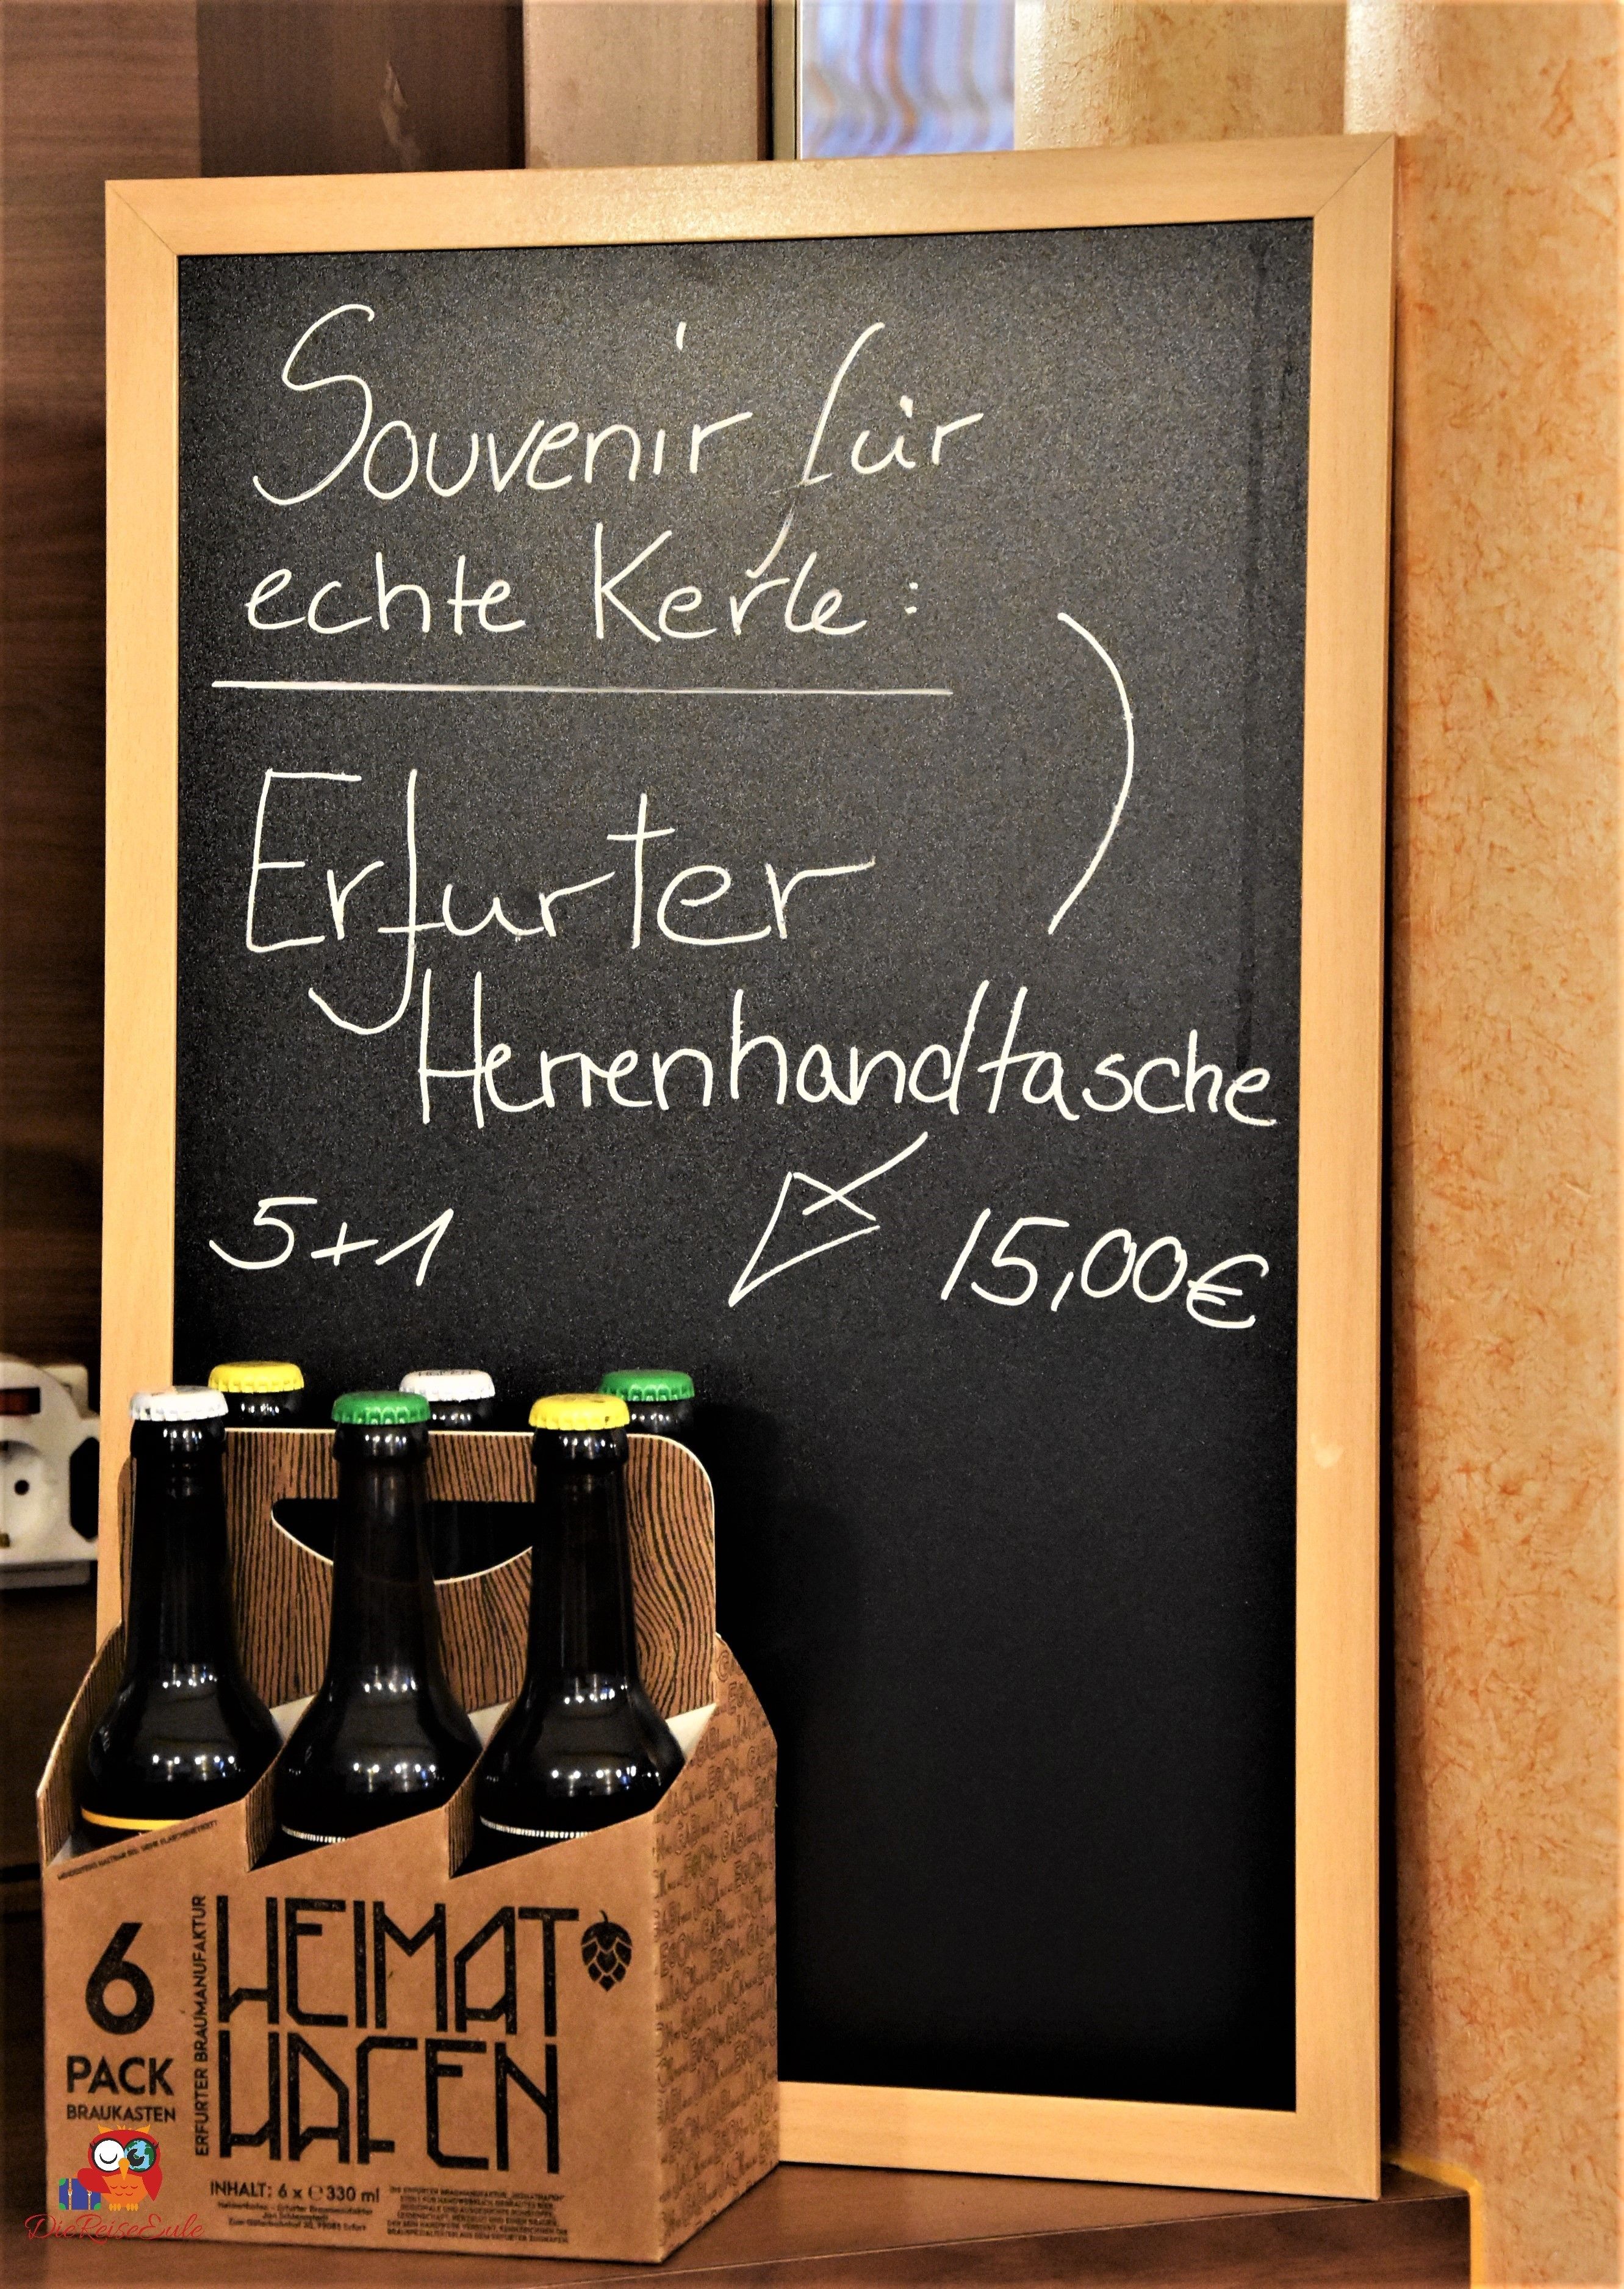 Souvenir für
echte Kerle:
Erfurter
Herrenhandtasche
5+1
15,00€
6
PACK
BRAUKASTEN
ERFURTER BRAUMANUFAKTUR
HEIMAT
HAFEN
INHALT: 6 x ℮ 330 ml
DieReiseEule